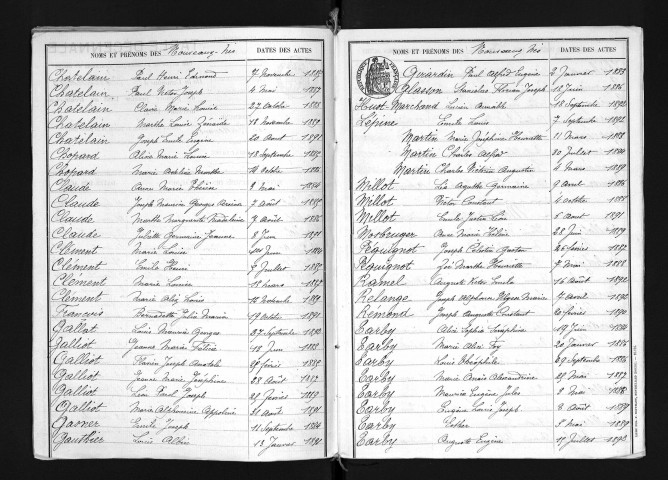 NOMS ET PRÉNOMS DES Nouveaux-Nés DATES DES ACTES
Chatelain Paul Henri Edmond 7 Novembre
Chatelain Paul Victor Joseph 4 Mai 1887
Chatelain Claire Marie Louise 27 Octobre 1888
Chatelain Marthe Louise Zénaïde 18 Novembre 1889
Chatelain Joseph Emile Eugène 20 Août 1891
Chopard Aline Marie Louise 13 Septembre 1885
Chopard Marie 14 Octobre 1886
Claude Anne Marie 8 Mai 1884
Claude Joseph Maurice Georges 7 Août 1885
Claude Marthe Marguerite Madeleine 7 Août 1886
Claude Juliette Germaine Jeanne 8 Juin 1891
Clément Marie Louise 1er Juin 1884
Clément Emile Henri 9 Juillet 1885
Clément Marie Louise 18 Mars 1887
Clément Marie Louis 16 Novembre 1889
François Bernadette Julie Marie 19 Octobre 1891
Gallat Louis Maurice Georges 27 Septembre 1892
Galliot Jeanne Marie 18 Juin 1883
Galliot Joseph Anatole Février 1885
Galliot Jeanne Marie Joséphine 28 Août 1887
Galliot Léon Paul Joseph 25 Février 1889
Galliot Marie Albertine Appoline 31 Août 1891
Garner Emile Joseph 11 Septembre 1884
Gauthier Louis Albin 13 Janvier 1891
NOMS ET PRÉNOMS DES Nouveaux Nés DATES DES ACTES
Girardin Paul Alfred Eugène 2 Janvier 1888
Glasson Stanislas Joseph 18 Juin 1886
Huot-Marchand Lucien 18 Septembre 1892
Lépine Emile Louis 7 Septembre 1892
Martin Marie Joséphine Henriette 11 Mars 1888
Martin Charles Alfred 30 Juillet 1890
Martin Charles Victorin Augustin 4 Mars 1889
Millot Lia Agathe Germaine 9 Avril 1886
Millot Victor Constant 4 Octobre 1888
Millot Emile Justin Léon 6 Août 1891
Mosbeuger Anne Marie Hélène 28 Juin 1889
Péquignot Joseph Célestin Gaston 26 Février 1887
Péquignot Marthe Henriette 7 Mai 1888
Ramel Auguste Victor Emile 16 Août 1892
Relange Joseph Alphonse Marie 7 Avril 1890
Rémond Joseph Auguste Constant 20 Février 1890
Tarby Alix Sophie Séraphine 19 Juin 1884
Tarby Marie Alix 20 Janvier 1886
Tarby Louis Théophile 29 Septembre 1886
Tarby Marie Anaïs Alexandrine 25 Mai 1887
Tarby Maurice Eugène Jules 8 Mai 1888
Tarby Eugène Louis Joseph 8 Août 1889
Tarby Esther 5 Mai 1889
Tarby Auguste Eugène 17 Juillet 1890